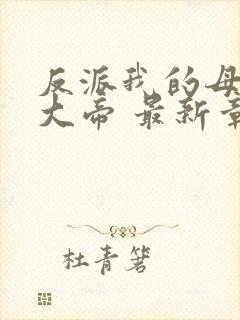 反派我的母
大帝 最新章
杜青箬